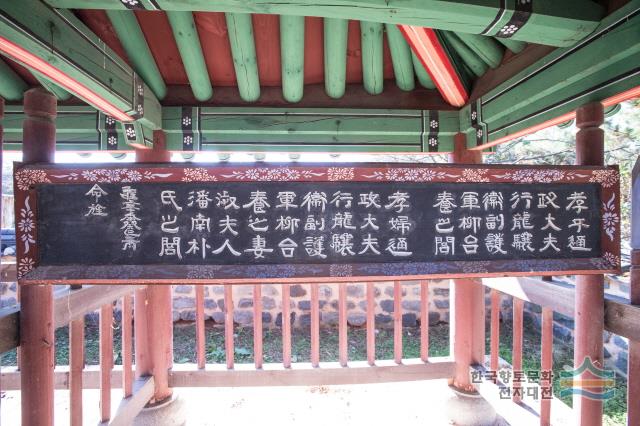 孝子通
政大夫
行龍驤
衛副護
軍柳台
養之閭
孝婦通
政大夫
行龍驤
衛副護
軍柳台
養之妻
淑夫人
潘南朴
氏之閭
命旌
향토문화
전자대전